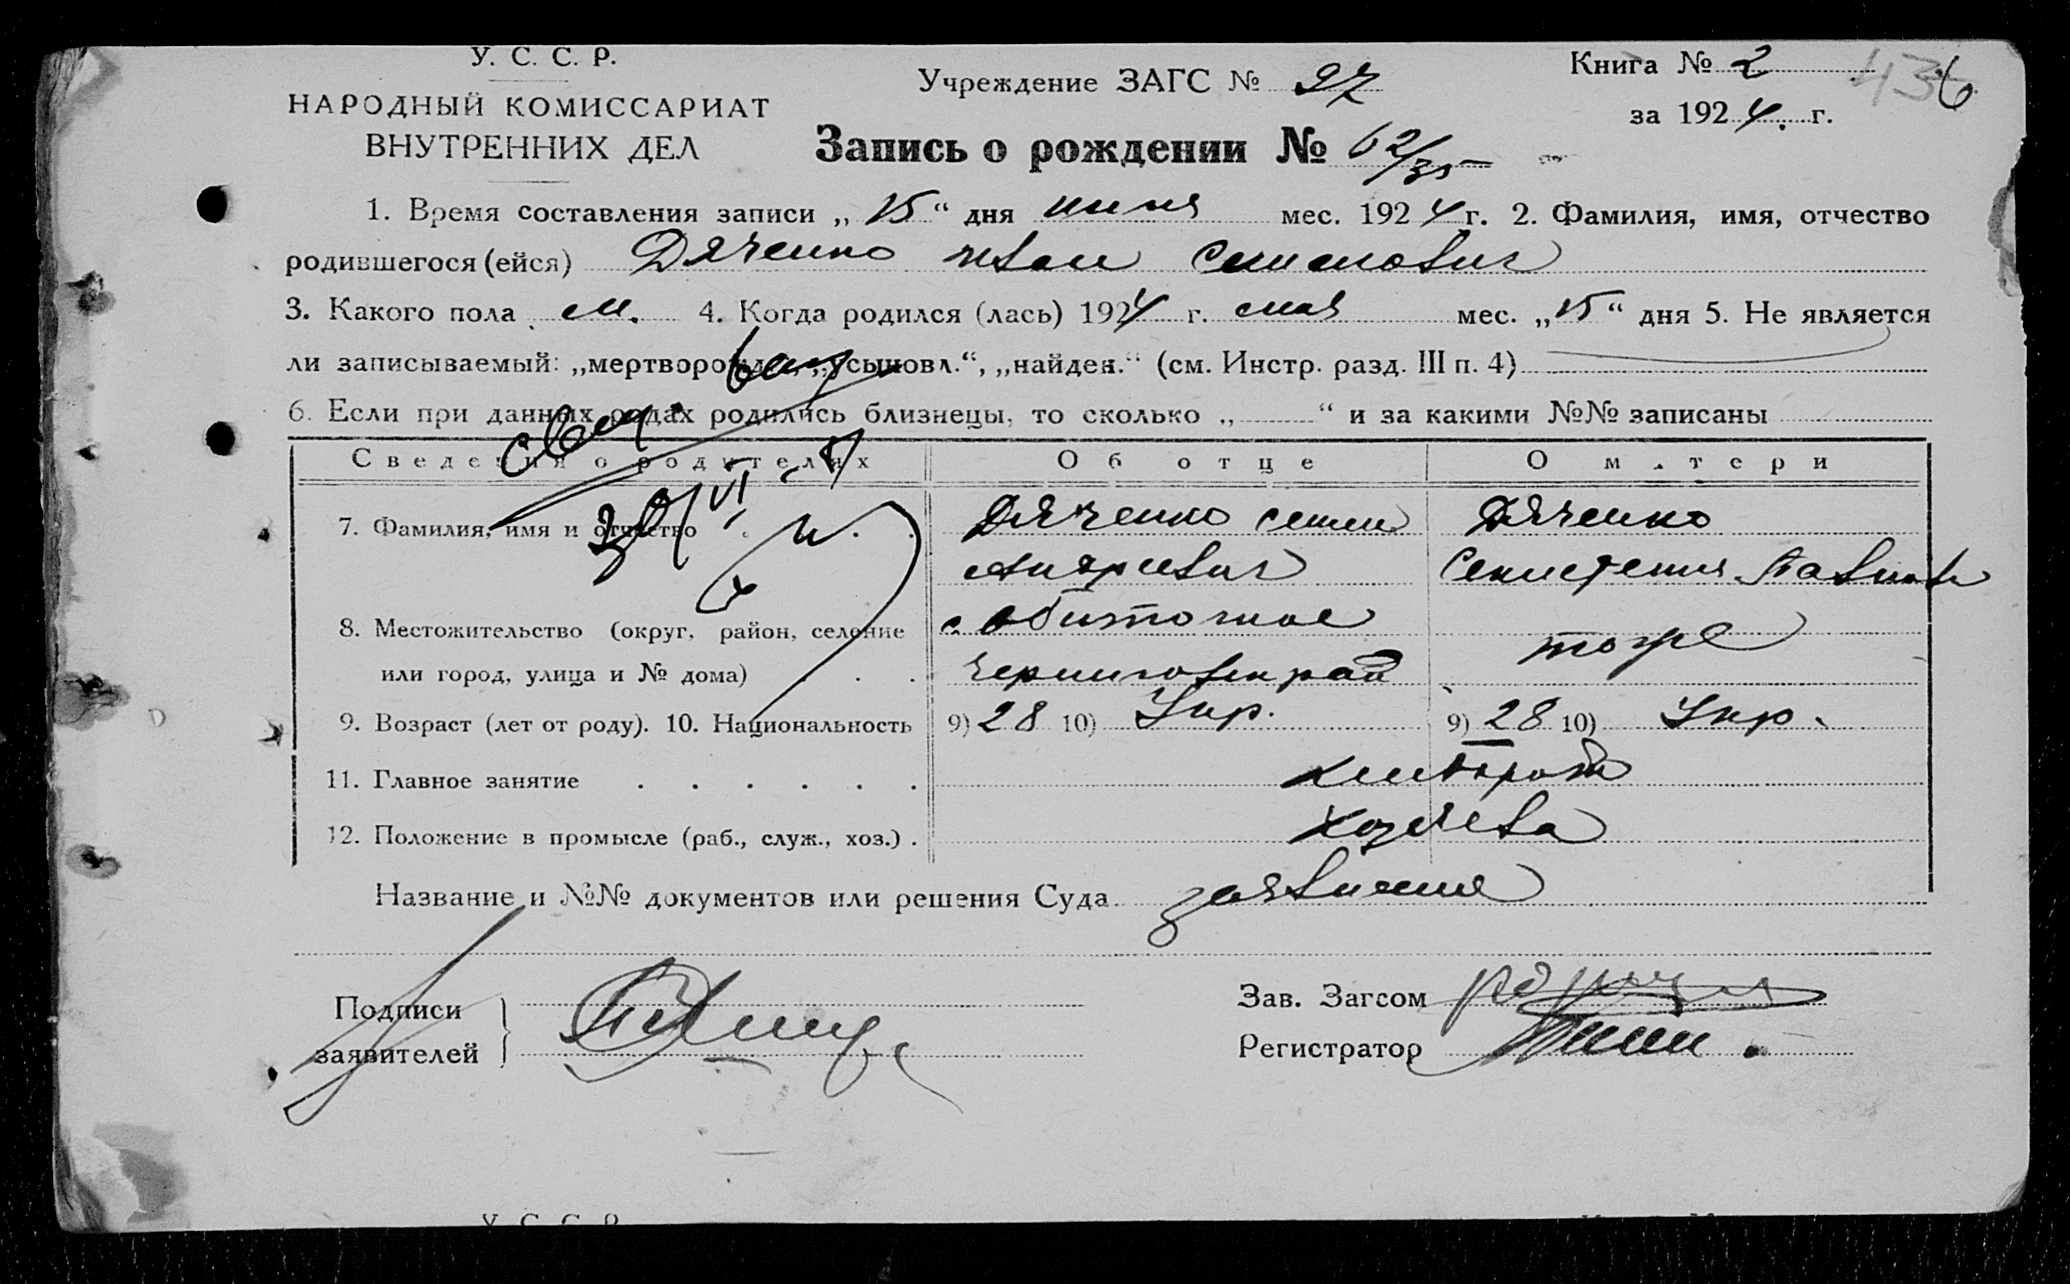 У. С. С. Р.
НАРОДНЫЙ КОМИССАРИАТ
ВНУТРЕННИХ ДЕЛ
Учреждение ЗАГС № 27
Книга № 2
436
за 1924 г.
Запись о рождении № 62/35
1. Время составления записи „15“ дня июня мес. 1924 г. 2. Фамилия, имя, отчество
родившегося (ейся) Дяченко Иван Семенович
3. Какого пола м. 4. Когда родился (лась) 1924 г. мая мес. „15“ дня 5. Не является
ли записываемый: „мертворожд.“, „усыновл.“, „найден.“ (см. Инстр. разд. III п. 4)
6. Если при данных родах родились близнецы, то сколько „ “ и за какими №№ записаны
Сведения о родителях Об отце О матери
7. Фамилия, имя и отчество Дяченко Семен Дяченко
8. Местожительство (округ, район, селение с. Обиточное тоже
или город, улица и № дома) Черниговск рай
9. Возраст (лет от роду). 10. Национальность 9) 28 10) Укр. 9) 28 10) Укр.
11. Главное занятие хлебороб
12. Положение в промысле (раб., служ., хоз.) хозяева
Название и №№ документов или решения Суда
Подписи
заявителей
Зав. Загсом
Регистратор
У. С. С. Р.